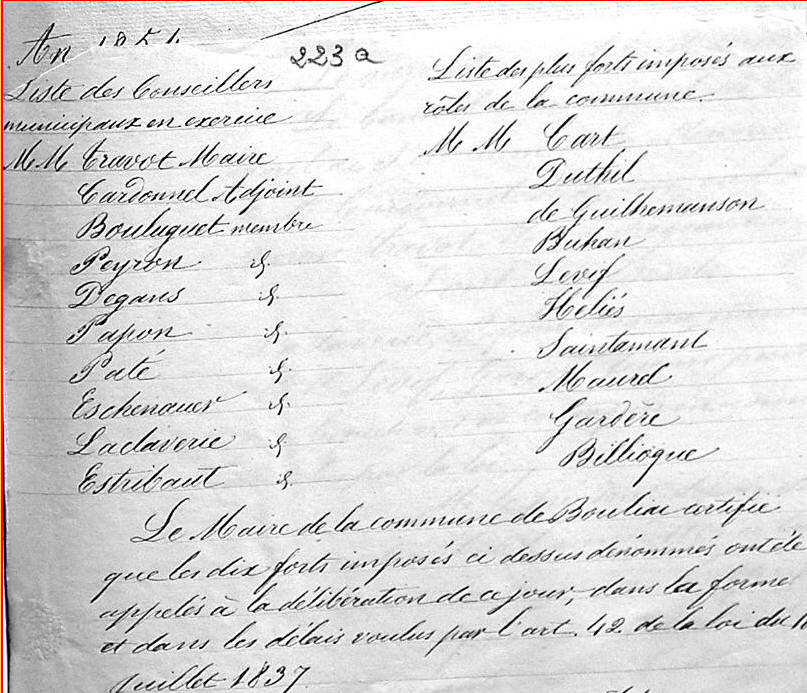 An 1851.
223 a
Liste des Conseillers
municipaux en exercice
MM Travot Maire
Cardonnel Adjoint
Bouluguet membre
Peyron d.
Degans d.
Papon d.
Paté d.
Eschenauer d.
Laclaverie d.
Estribaut d.
Liste des plus forts imposés aux
rôles de la commune.
M M Cart
Duthil
de Guilhemanson
Buhan
Levif
Heliés
Saintamant
Maurel
Gardère
Billioque
Le Maire de la commune de Bouliac certifie
que les dix forts imposés ci dessus dénommés ont été
appelés à la délibération de ce jour, dans la forme
et dans les délais voulus par l'art. 42 de la loi du
Juillet 1837